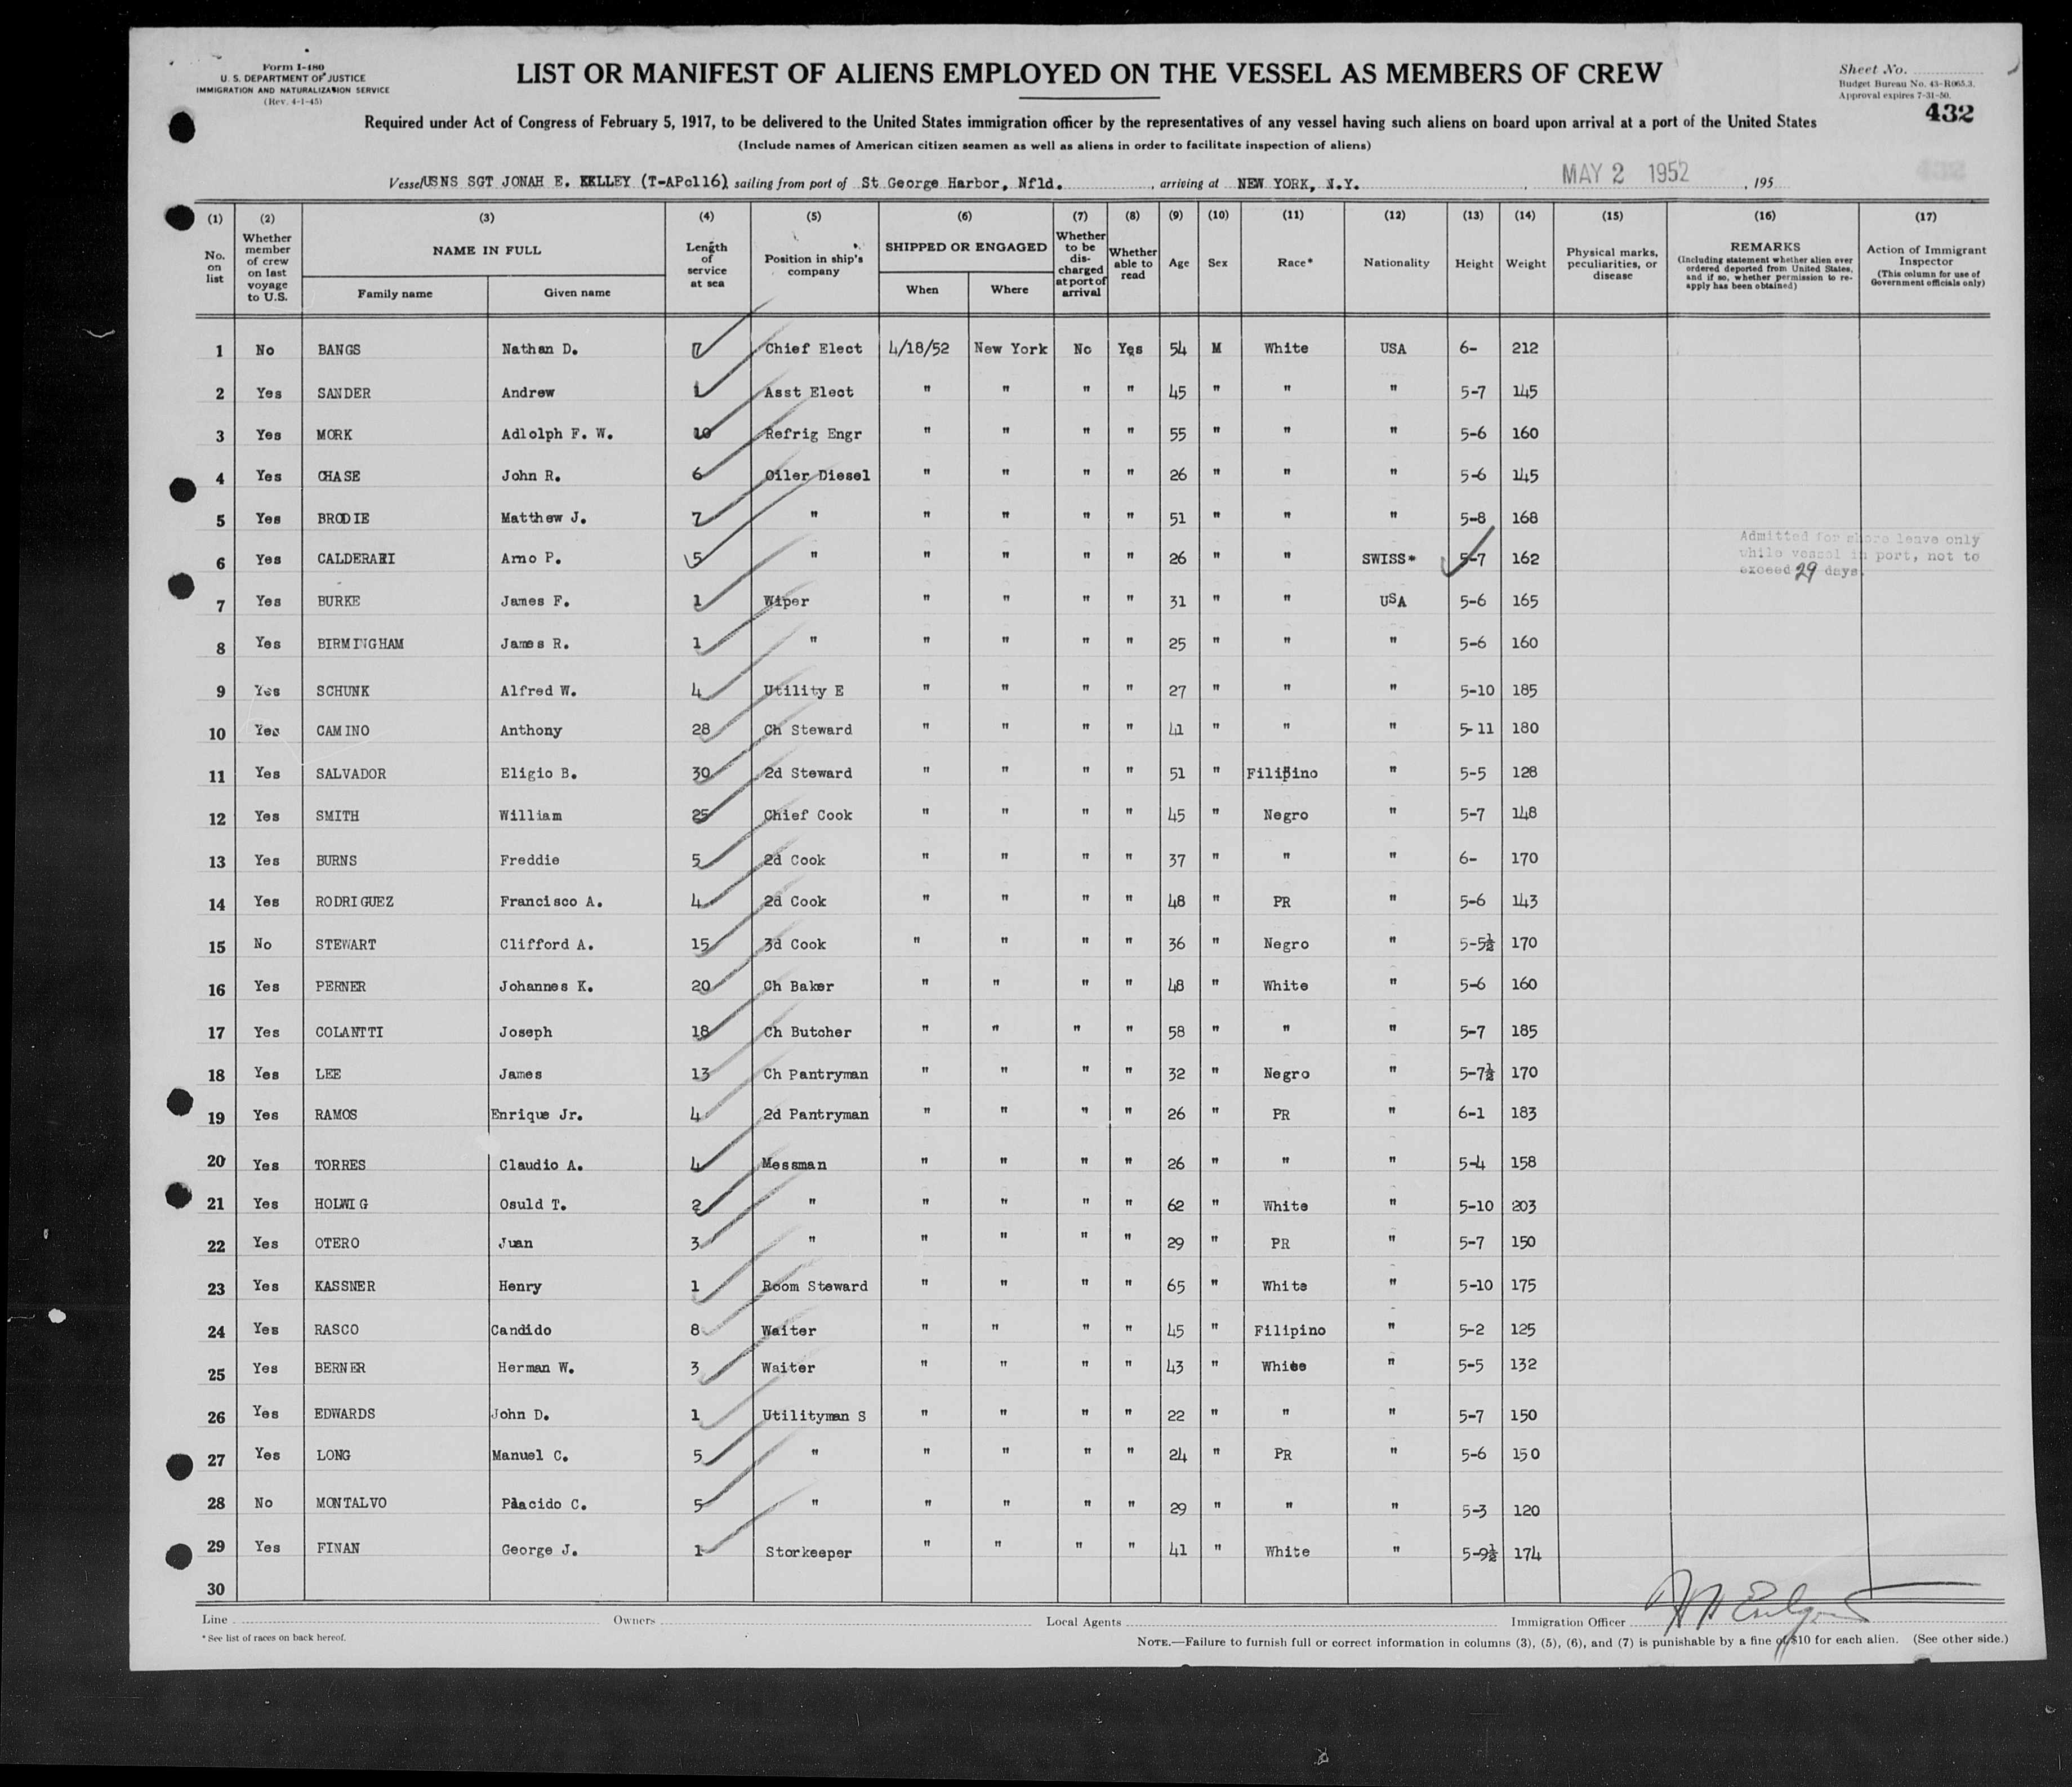 Form I-480
U. S. DEPARTMENT OF JUSTICE
IMMIGRATION AND NATURALIZATION SERVICE
(Rev. 4-1-45)
LIST OR MANIFEST OF ALIENS EMPLOYED ON THE VESSEL AS MEMBERS OF CREW
Sheet No.
Budget Bureau No. 43-R065.3.
Approval expires 7-31-50.
432
Required under Act of Congress of February 5, 1917, to be delivered to the United States immigration officer by the representatives of any vessel having such aliens on board upon arrival at a port of the United States
(Include names of American citizen seamen as well as aliens in order to facilitate inspection of aliens)
Vessel USNS SGT JONAH E. KELLEY (T-APc116) sailing from port of St George Harbor, Nfld. , arriving at NEW YORK, N.Y. , MAY 2 1952 , 195
(1) (2) (3) (4) (5) (6) (7) (8) (9) (10) (11) (12) (13) (14) (15) (16) (17)
No. on list
Whether member of crew on last voyage to U.S.
NAME IN FULL
Family name
Given name
Length of service at sea
Position in ship's company
SHIPPED OR ENGAGED
When
Where
Whether to be discharged at port of arrival
Whether able to read
Age
Sex
Race*
Nationality
Height
Weight
Physical marks, peculiarities, or disease
REMARKS
(Including statement whether alien ever ordered deported from United States, and if so, whether permission to reapply has been obtained)
Action of Immigrant Inspector
(This column for use of Government officials only)
1 No BANGS Nathan D. 7 Chief Elect 4/18/52 New York No Yes 54 M White USA 6- 212
2 Yes SANDER Andrew 1 Asst Elect " " " " 45 " " " 5-7 145
3 Yes MORK Adlolph F. W. 10 Refrig Engr " " " " 55 " " " 5-6 160
4 Yes CHASE John R. 6 Oiler Diesel " " " " 26 " " " 5-6 145
5 Yes BRODIE Matthew J. 7 " " " " " 51 " " " 5-8 168
6 Yes CALDERARI Arno P. 5 " " " " " 26 " " SWISS* 5-7 162 Admitted for shore leave only while vessel in port, not to exceed 29 days.
7 Yes BURKE James F. 1 Wiper " " " " 31 " " USA 5-6 165
8 Yes BIRMINGHAM James R. 1 " " " " " 25 " " " 5-6 160
9 Yes SCHUNK Alfred W. 4 Utility E " " " " 27 " " " 5-10 185
10 Yes CAMINO Anthony 28 Ch Steward " " " " 41 " " " 5-11 180
11 Yes SALVADOR Eligio B. 30 2d Steward " " " " 51 " Filipino " 5-5 128
12 Yes SMITH William 25 Chief Cook " " " " 45 " Negro " 5-7 148
13 Yes BURNS Freddie 5 2d Cook " " " " 37 " " " 6- 170
14 Yes RODRIGUEZ Francisco A. 4 2d Cook " " " " 48 " PR " 5-6 143
15 No STEWART Clifford A. 15 3d Cook " " " " 36 " Negro " 5-5½ 170
16 Yes PERNER Johannes K. 20 Ch Baker " " " " 48 " White " 5-6 160
17 Yes COLANTTI Joseph 18 Ch Butcher " " " " 58 " " " 5-7 185
18 Yes LEE James 13 Ch Pantryman " " " " 32 " Negro " 5-7½ 170
19 Yes RAMOS Enrique Jr. 4 2d Pantryman " " " " 26 " PR " 6-1 183
20 Yes TORRES Claudio A. 4 Messman " " " " 26 " " " 5-4 158
21 Yes HOLWIG Osuld T. 2 " " " " " 62 " White " 5-10 203
22 Yes OTERO Juan 3 " " " " " 29 " PR " 5-7 150
23 Yes KASSNER Henry 1 Room Steward " " " " 65 " White " 5-10 175
24 Yes RASCO Candido 8 Waiter " " " " 45 " Filipino " 5-2 125
25 Yes BERNER Herman W. 3 Waiter " " " " 43 " White " 5-5 132
26 Yes EDWARDS John D. 1 Utilityman S " " " " 22 " " " 5-7 150
27 Yes LONG Manuel C. 5 " " " " " 24 " PR " 5-6 150
28 No MONTALVO Placido C. 5 " " " " " 29 " " " 5-3 120
29 Yes FINAN George J. 1 Storkeeper " " " " 41 " White " 5-9½ 174
30
Line Owners Local Agents Immigration Officer
* See list of races on back hereof.
NOTE.—Failure to furnish full or correct information in columns (3), (5), (6), and (7) is punishable by a fine of $10 for each alien. (See other side.)